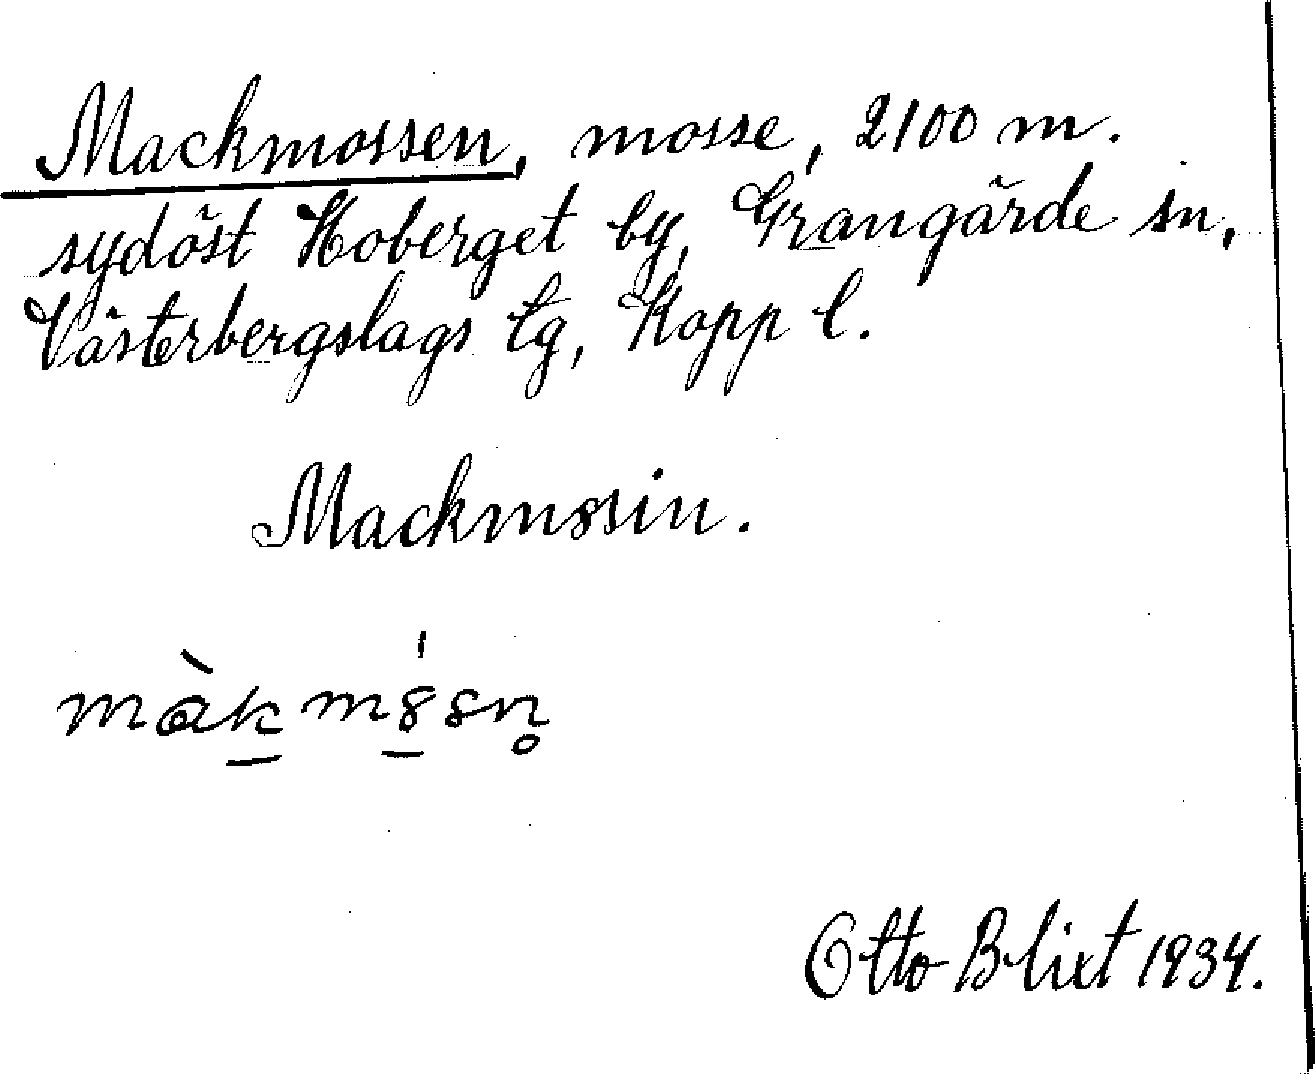 Mackmossen, mosse, 2100 m.
sydöst Hoberget by, Grangärde sn,
Västerbergslags tg, Kopp l.
Mackmossin.
Otto Blixt 1934.